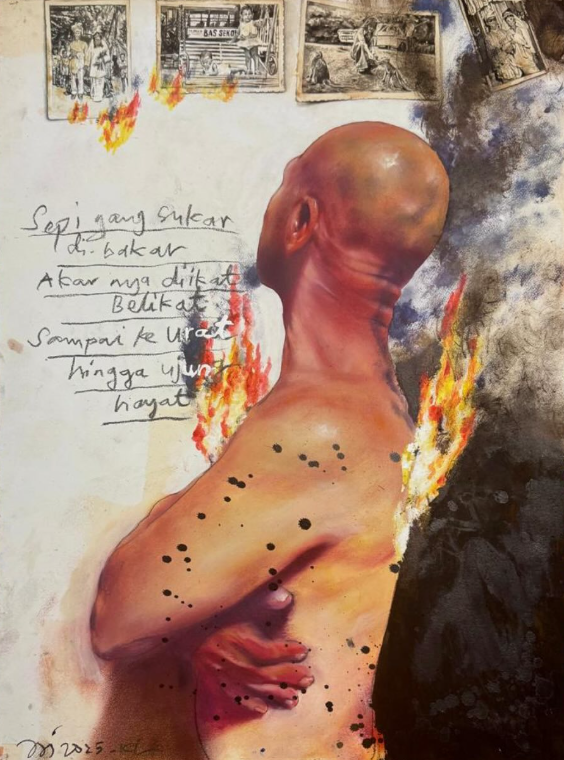 BAS SEKO
Sepi yang sukar
di-bakar
Akar nya diikat
Belikat
Sampai ke Urat
hingga ujung
hayat
2025-KL